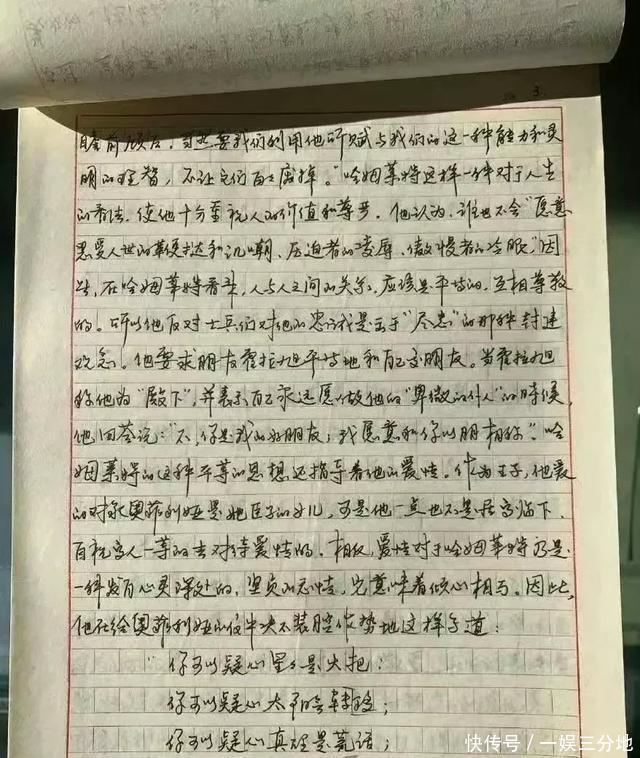 3.
瞻前顾后，当然要我们利用他所赋与我们的这一种能力和灵
明的理智，不让它们白白废掉。”哈姆莱特这样一种对于人生
的看法，使他十分重视人的价值和尊严。他认为，谁也不会“愿意
忍受人世的鞭挞和讥嘲、压迫者的凌辱、傲慢者的冷眼”因
此，在哈姆莱特看来，人与人之间的关系，应该是平等的，互相尊敬
的。所以他反对士兵们对他的忠诚是出于“尽忠”的那种封建
观念。他要求朋友霍拉旭平等地和自己交朋友。当霍拉旭
称他为“殿下”，并表示自己永远愿以做他的“卑微的仆人”的时候，
他回答说：“不，你是我的好朋友；我愿意和你以朋相称”。哈
姆莱特的这种平等的思想还指导着他的爱情。作为王子，他爱
的对象奥菲利娅是她臣子的女儿，可是他一点也不是居高临下，
自视高人一等的去对待爱情的。相反，爱情对于哈姆莱特乃是
一种发自心灵深处的，坚贞的感情，完全意味着倾心相与。因此，
他在给奥菲利娅的信中决不装腔作势地这样写道：
“你可以疑心星星是火把；
你可以疑心太阳会转移；
你可以疑心真理是荒话；
快传号／一娱三分地